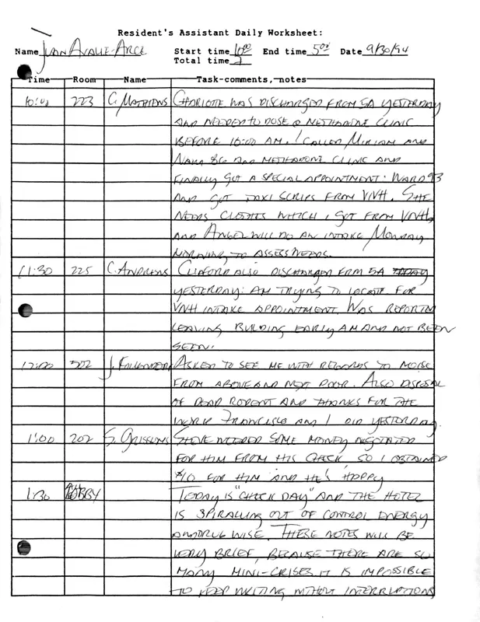 Resident's Assistant Daily Worksheet:
Name JUAN AVALLE-ARCE Start time 10:00 End time 5:00 Date 9/30/94
Total time 7
Time Room Name Task-comments, notes
10:00 223 C. MATHEWS CHARLOTTE WAS DISCHARGED FROM 5A YESTERDAY
AND NEEDED TO DOSE @ METHADONE CLINIC
BEFORE 10:00 AM. I CALLED MIRIAM AND
WARD 86 AND METHADONE CLINIC AND
FINALLY GOT A SPECIAL APPOINTMENT: WARD 93
AND GOT TAXI SCRIPS FROM VNH. SHE
NEEDS CLOTHES WHICH I GOT FROM VNH,
AND ANGEL WILL DO AN INTAKE MONDAY
MORNING TO ASSESS NEEDS.
11:30 225 C. ANDREWS CLIFFORD ALSO DISCHARGED FROM 5A
YESTERDAY: AM TRYING TO LOCATE FOR
VNH INTAKE APPOINTMENT. WAS REPORTED
LEAVING BUILDING EARLY AM AND NOT BEEN
SEEN.
12:00 302 J. ASKED TO SEE ME WITH REGARDS TO NOISE
FROM ABOVE AND NEXT DOOR. ALSO DISPOSAL
OF DEAD RODENT AND THANKS FOR THE
WORK FRANCISCO AND I DID YESTERDAY.
1:00 202 S. NEEDED SOME MONEY NEGOTIATED
FOR HIM FROM HIS CHECK SO I OBTAINED
$10 FOR HIM AND HE'S HAPPY
1:30 LOBBY TODAY IS "CHECK DAY" AND THE HOTEL
IS SPIRALLING OUT OF CONTROL ENERGY
AND DRUG WISE. THESE NOTES WILL BE
VERY BRIEF, BECAUSE THERE ARE SO
MANY MINI-CRISES IT IS IMPOSSIBLE
TO KEEP WRITING WITHOUT INTERRUPTIONS